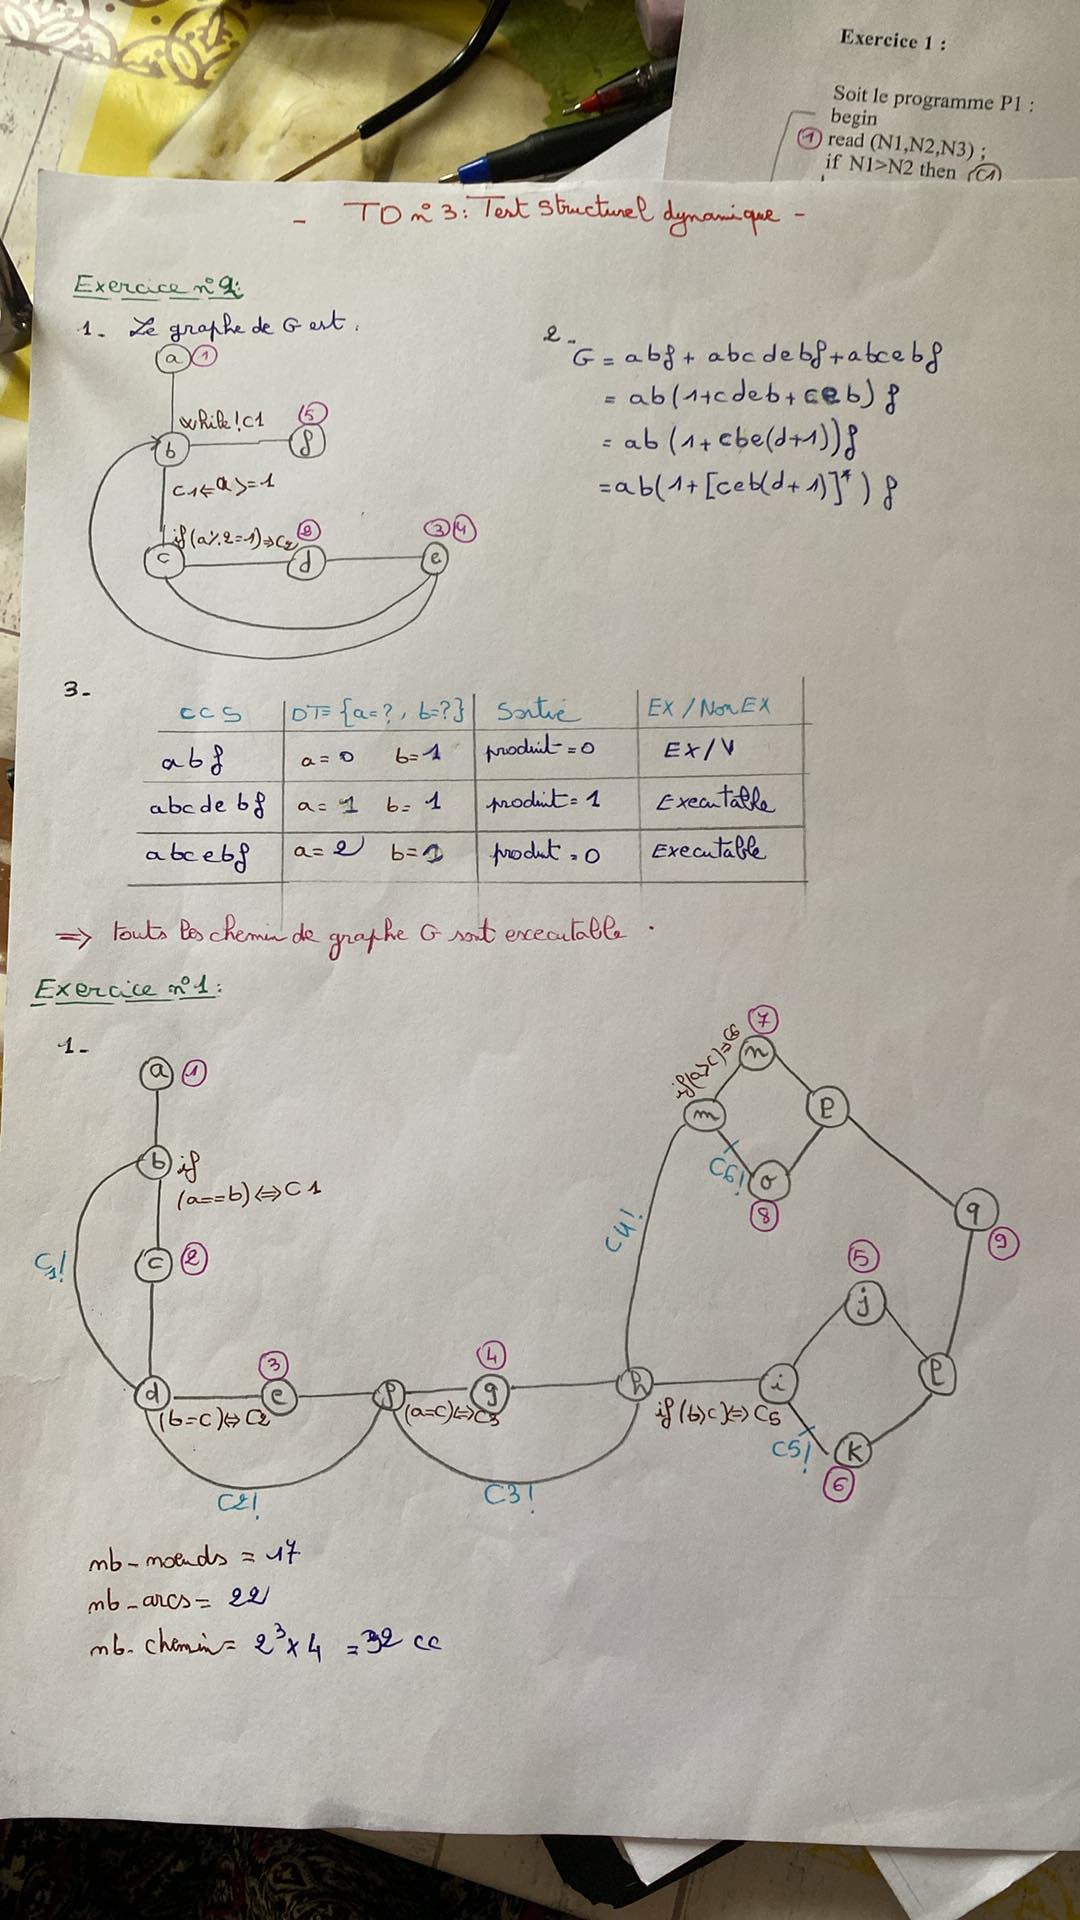 Exercice 1 :
Soit le programme P1 :
begin
① read (N1,N2,N3) ;
if N1>N2 then (C1)
- TD n°3: Test Structurel dynamique -
Exercice n°2:
1- Le graphe de G est :
a ①
while !C1
⑤
b f
C1 <= a >= 1
if (a%2=1) => C2 ②
③ ④
c d e
2-
G = abf + abcdebf + abcebf
= ab(1+cdeb+ceb) f
= ab (1+cbe(d+1))f
= ab(1+[ceb(d+1)]*) f
3-
CCS DT= {a=?, b=?} Sortie EX / Non EX
abf a=0 b=1 produit=0 EX/V
abcdebf a=1 b=1 produit=1 Executable
abcebf a=2 b= produt=0 Executable
=> touts les chemin de graphe G sont executable .
Exercice n°1:
1-
a ①
b if
(a==b) <=> C1
C1!
c ②
③ ④
d e f g h i
(b=c) <=> C2
(a=c) <=> C3
if (b>c) <=> C5
C2!
C3!
C4!
⑦
if (a>c) => C6
n
m p
C6!
o
⑧
q
⑨
⑤
j
l
C5!
k
⑥
nb-noeuds = 17
nb-arcs = 22
nb-chemin = 2³ x 4 = 32 cc